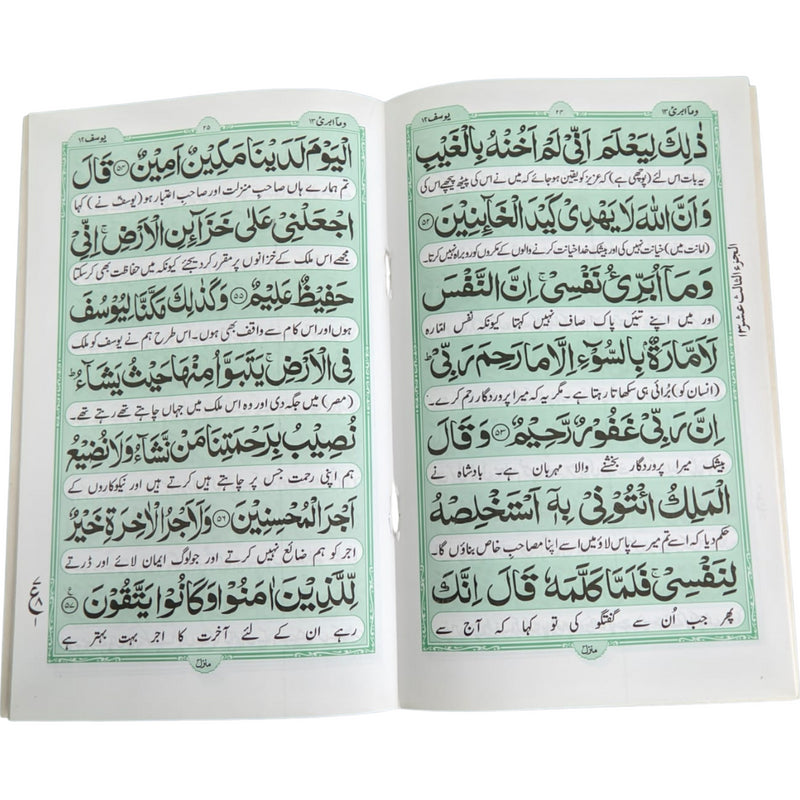 یوسف ۱۲
۲۴
وما ابرئ ۱۳
ذٰلِكَ لِيَعْلَمَ اَنِّىْ لَمْ اَخُنْهُ بِالْغَيْبِ
یہ بات اس لئے (پوچھی ہے) کہ عزیز کو یقین ہو جائے کہ میں نے اس کی پیٹھ پیچھے اس کی
وَاَنَّ اللّٰهَ لَا يَهْدِىْ كَيْدَ الْخَآئِنِيْنَ ۵۲
(امانت میں) خیانت نہیں کی اور بیشک خدا خیانت کرنے والوں کے مکروں کو روبراہ نہیں کرتا۔
وَمَآ اُبَرِّئُ نَفْسِىْ ۚ اِنَّ النَّفْسَ
اور میں اپنے تئیں پاک صاف نہیں کہتا کیونکہ نفس امارہ
لَاَمَّارَةٌۢ بِالسُّوْٓءِ اِلَّا مَا رَحِمَ رَبِّىْ ؕ
(انسان کو) بُرائی ہی سکھاتا رہتا ہے۔ مگر یہ کہ میرا پروردگار رحم کرے۔
اِنَّ رَبِّىْ غَفُوْرٌ رَّحِيْمٌ ۵۳ وَ قَالَ
بیشک میرا پروردگار بخشنے والا مہربان ہے۔ بادشاہ نے
الْمَلِكُ ائْتُوْنِىْ بِهٖٓ اَسْتَخْلِصْهُ
حکم دیا کہ اسے تم میرے پاس لاؤ میں اسے اپنا مصاحب خاص بناؤں گا۔
لِنَفْسِىْ ۚ فَلَمَّا كَلَّمَهٗ قَالَ اِنَّكَ
پھر جب اُن سے گفتگو کی تو کہا کہ آج سے
منزل
الجزء الثالث عشر ۱۳
یوسف ۱۲
۲۵
وما ابرئ ۱۳
الْيَوْمَ لَدَيْنَا مَكِيْنٌ اَمِيْنٌ ۵۴ قَالَ
تم ہمارے ہاں صاحب منزلت اور صاحب اعتبار ہو (یوسف نے) کہا
اجْعَلْنِىْ عَلٰى خَزَآئِنِ الْاَرْضِ ۚ اِنِّىْ
مجھے اس ملک کے خزانوں پر مقرر کر دیجئے کیونکہ میں حفاظت بھی کر سکتا
حَفِيْظٌ عَلِيْمٌ ۵۵ وَكَذٰلِكَ مَكَّنَّا لِيُوْسُفَ
ہوں اور اس کام سے واقف بھی ہوں۔ اس طرح ہم نے یوسف کو ملک
فِى الْاَرْضِ ۚ يَتَبَوَّاُ مِنْهَا حَيْثُ يَشَآءُ ؕ
(مصر) میں جگہ دی اور وہ اس ملک میں جہاں چاہتے تھے رہتے تھے۔
نُصِيْبُ بِرَحْمَتِنَا مَنْ نَّشَآءُ وَلَا نُضِيْعُ
ہم اپنی رحمت جس پر چاہتے ہیں کرتے ہیں اور نیکوکاروں کے
اَجْرَ الْمُحْسِنِيْنَ ۵۶ وَلَاَجْرُ الْاٰخِرَةِ خَيْرٌ
اجر کو ہم ضائع نہیں کرتے اور جو لوگ ایمان لائے اور ڈرتے
لِّلَّذِيْنَ اٰمَنُوْا وَكَانُوْا يَتَّقُوْنَ ۵۷
رہے ان کے لئے آخرت کا اجر بہت بہتر ہے
منزل